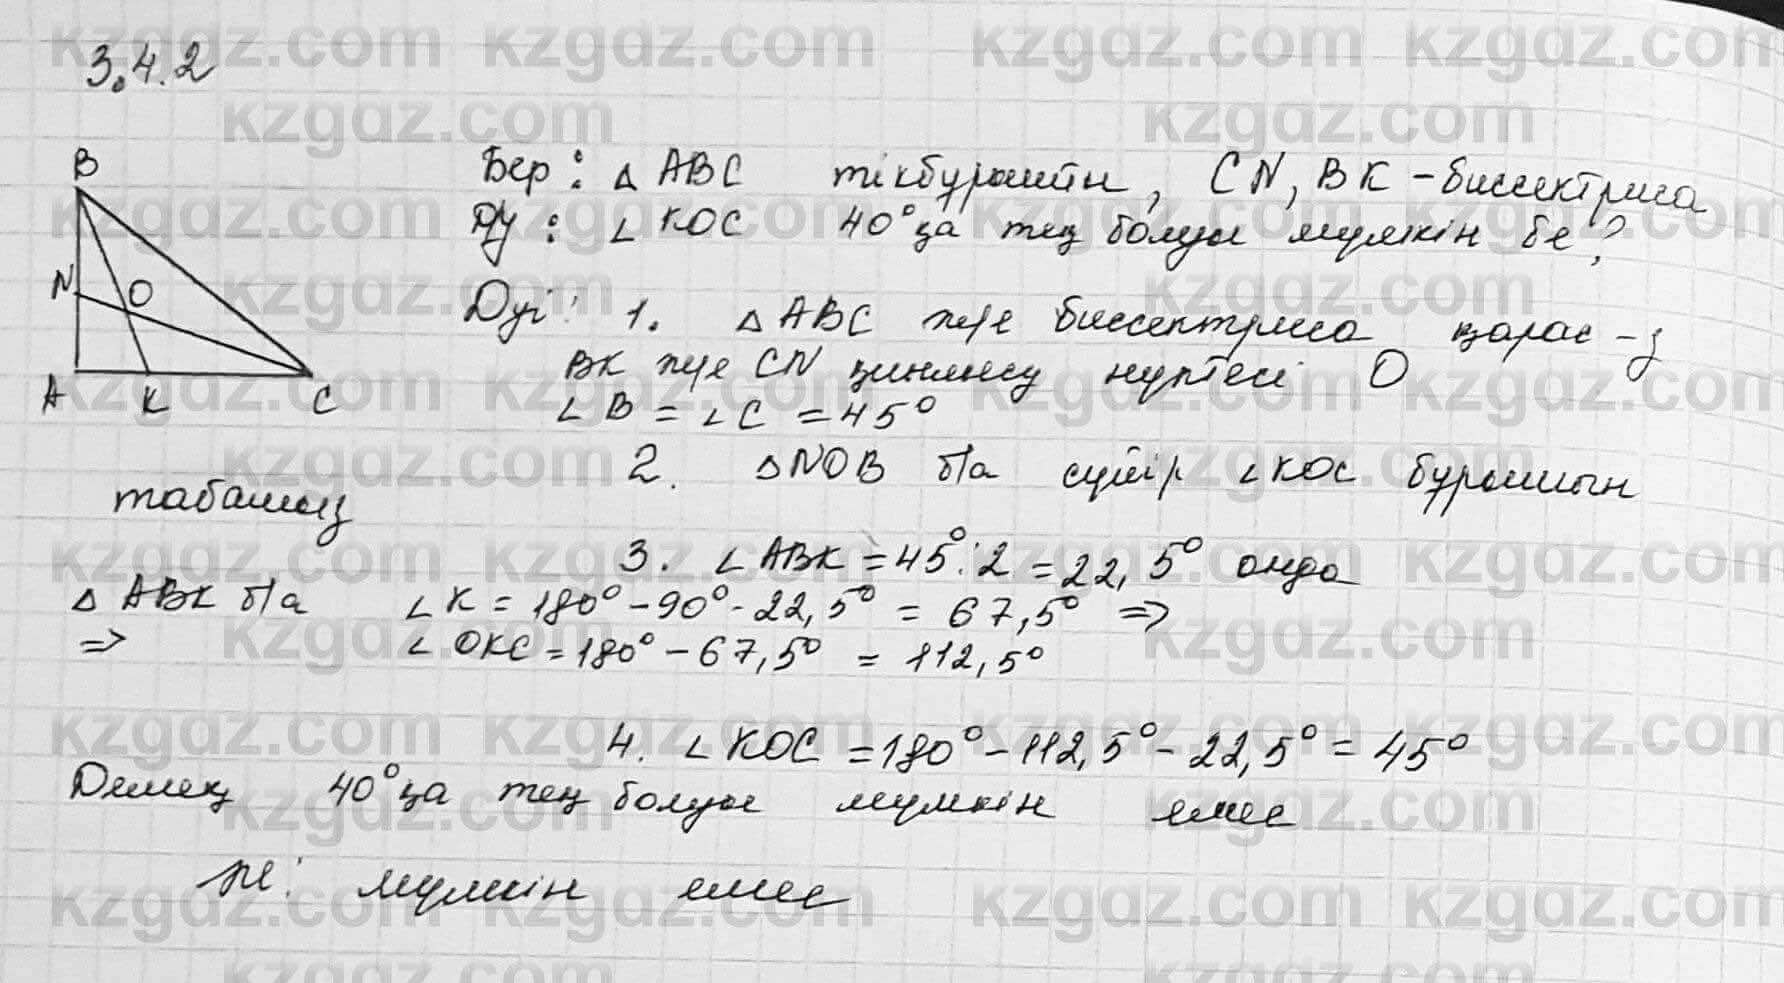 3.4.2
B
N
O
A
K
C
Бер: △ ABC тікбұрышты, CN, BK - биссектриса
Ду: ∠ KOC 40°қа тең болуы мүмкін бе?
Дуі: 1. △ ABC және биссектриса қарас-з
BK және CN қиылысу нүктесі O
∠ B = ∠ C = 45°
2. △ NOB б/а сүйір ∠ KOC бұрышын
табамыз
3. ∠ ABK = 45° : 2 = 22,5° онда
△ ABK б/а ∠ K = 180° - 90° - 22,5° = 67,5° =>
=> ∠ OKC = 180° - 67,5° = 112,5°
4. ∠ KOC = 180° - 112,5° - 22,5° = 45°
Демек, 40°қа тең болуы мүмкін емес
Ж: мүмкін емес
kzgdz.com